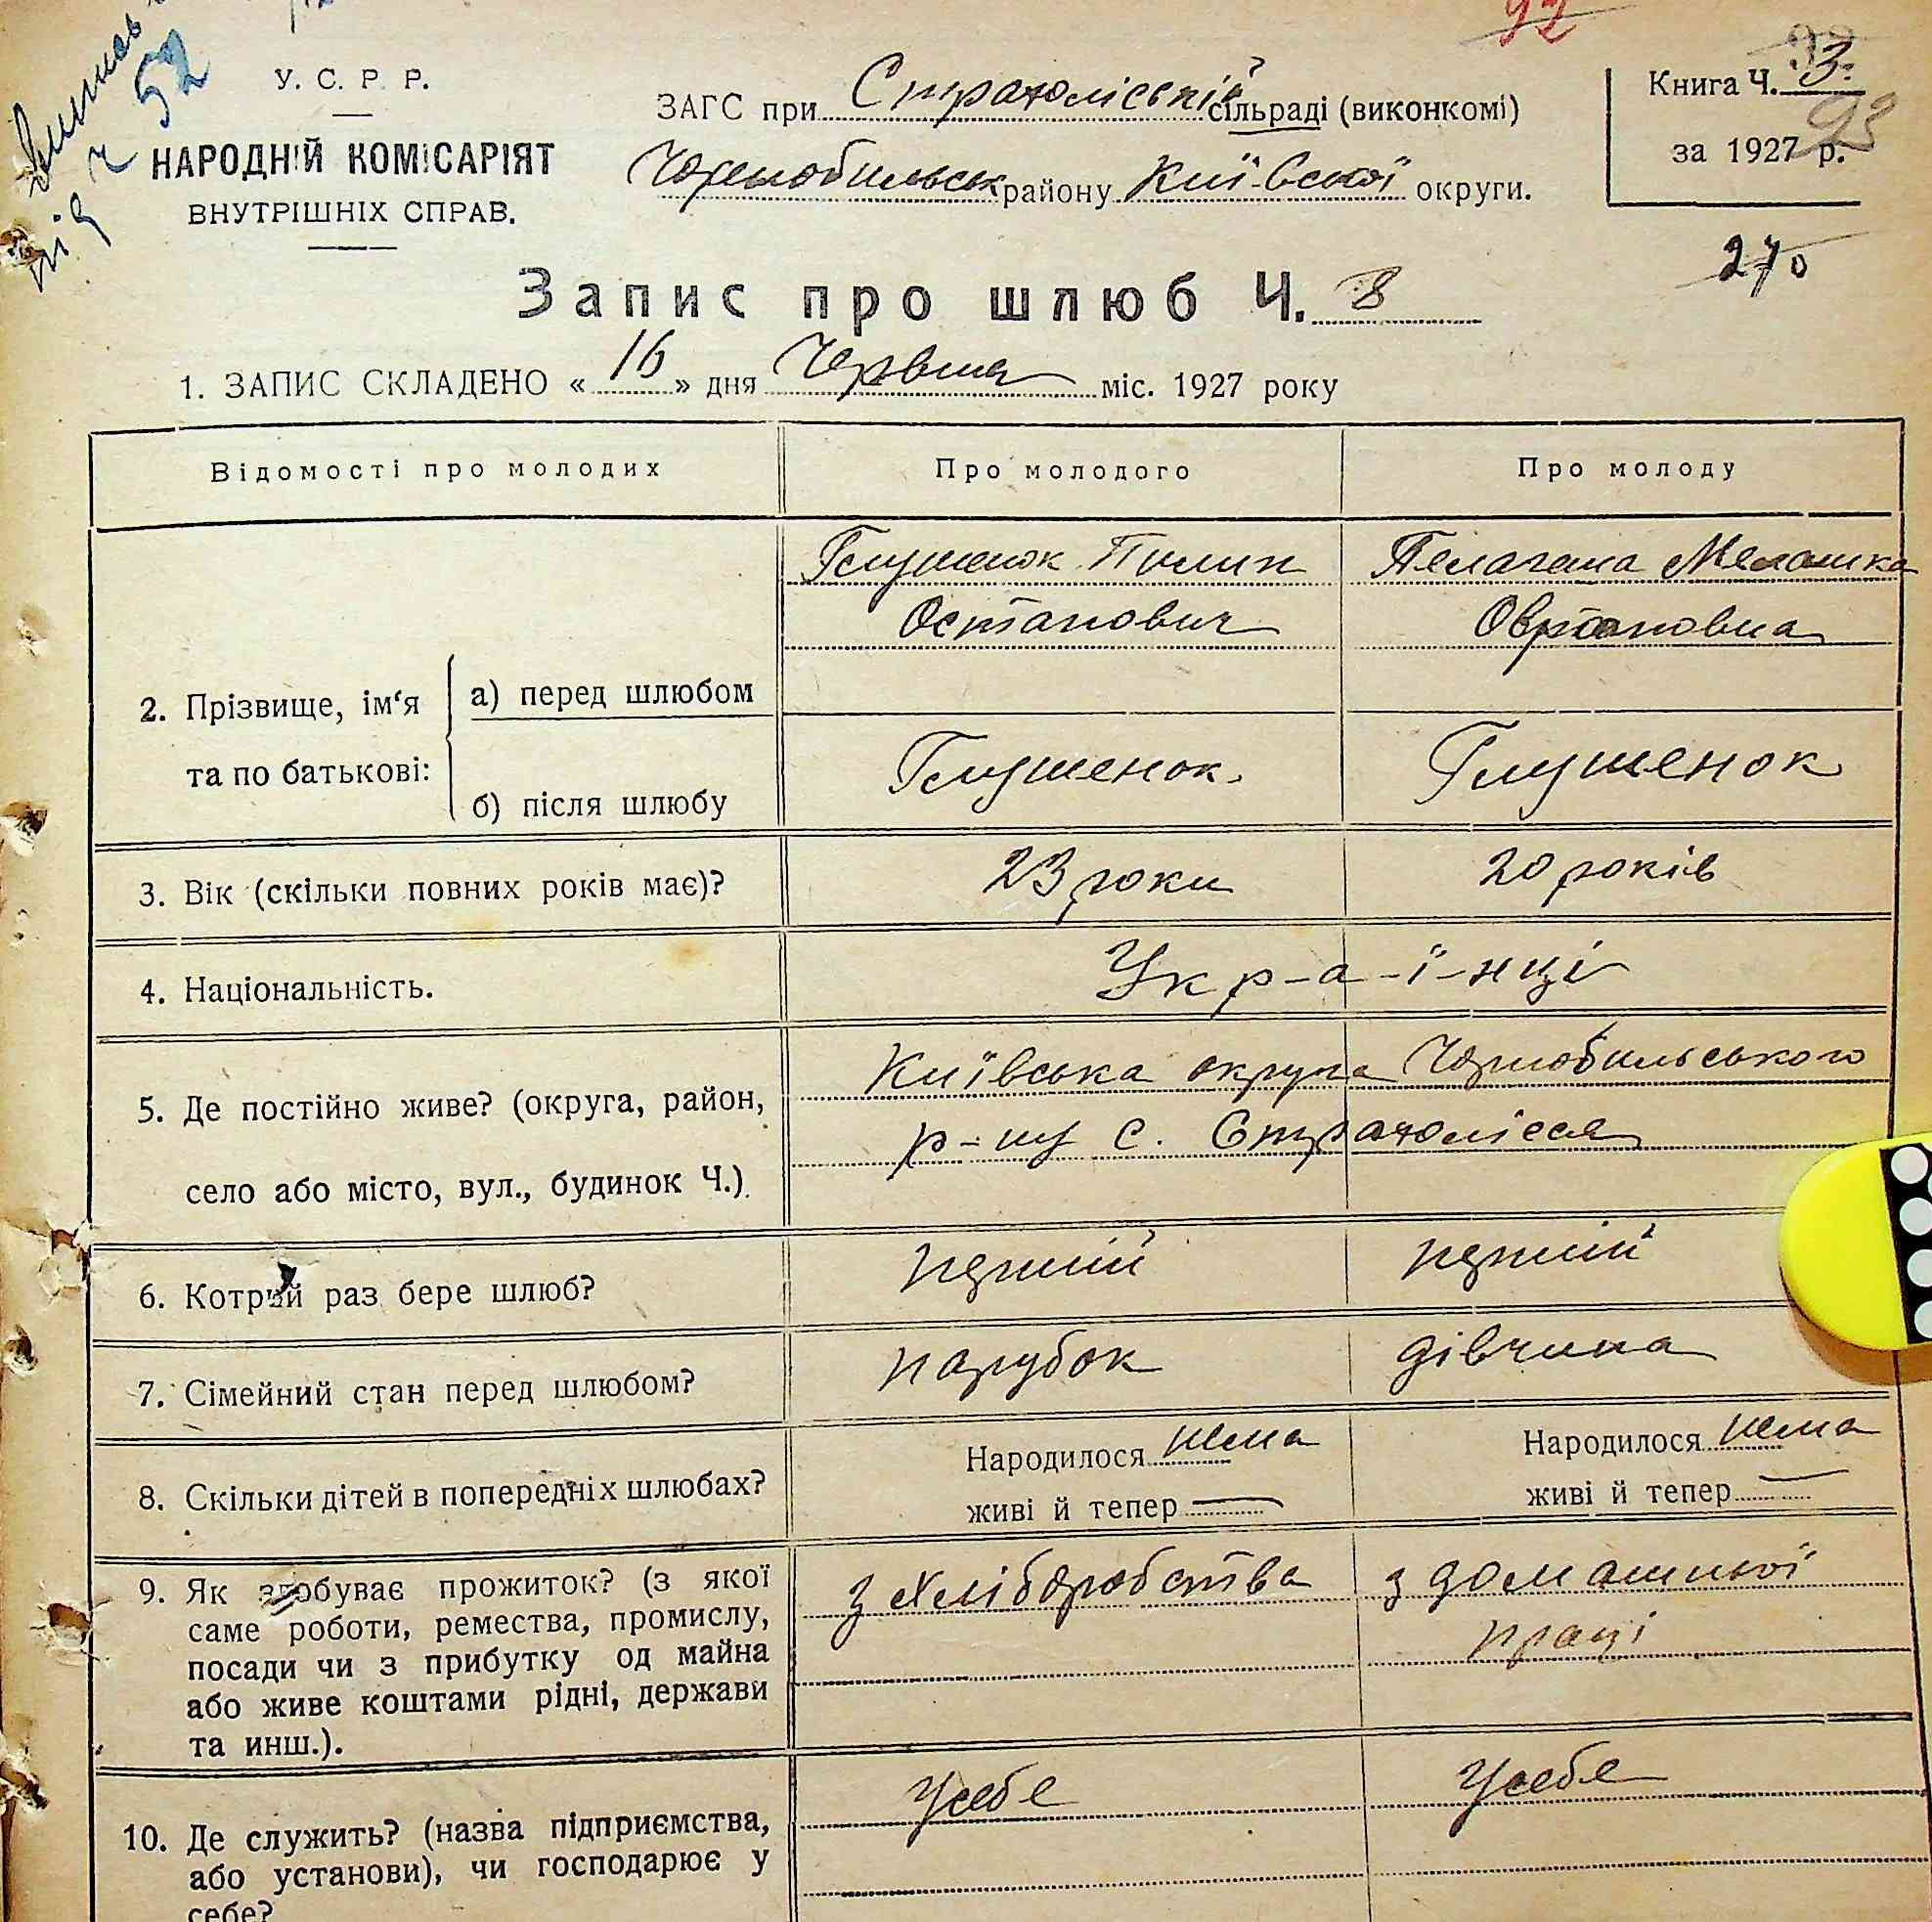 92
під ч 52
У. С. Р. Р.
НАРОДНІЙ КОМІСАРІЯТ
ВНУТРІШНІХ СПРАВ.
ЗАГС при Страхоліській сільраді (виконкомі)
Чорнобильськ району Київської округи.
Книга Ч. 3.
93
за 1927 р.
270
Запис про шлюб Ч. 8
1. ЗАПИС СКЛАДЕНО « 16 » дня Червня міс. 1927 року
Відомості про молодих
Про молодого
Про молоду
2. Прізвище, ім'я
та по батькові:
а) перед шлюбом
б) після шлюбу
Глушенок Пилип
Остапович
Мелашка
Глушенок.
Глушенок
3. Вік (скільки повних років має)?
23 роки
20 років
4. Національність.
Укр-а-ї-нці
5. Де постійно живе? (округа, район,
село або місто, вул., будинок Ч.).
Київська округа Чорнобильського
р-ну с. Страхолісся
6. Котрий раз бере шлюб?
перший
перший
7. Сімейний стан перед шлюбом?
парубок
дівчина
8. Скільки дітей в попередніх шлюбах?
Народилося нема
живі й тепер —
Народилося нема
живі й тепер —
9. Як здобуває прожиток? (з якої
саме роботи, ремества, промислу,
посади чи з прибутку од майна
або живе коштами рідні, держави
та инш.).
з хліборобства
з домашньої
праці
10. Де служить? (назва підприємства,
або установи), чи господарює у
себе?
Усебе
Усебе